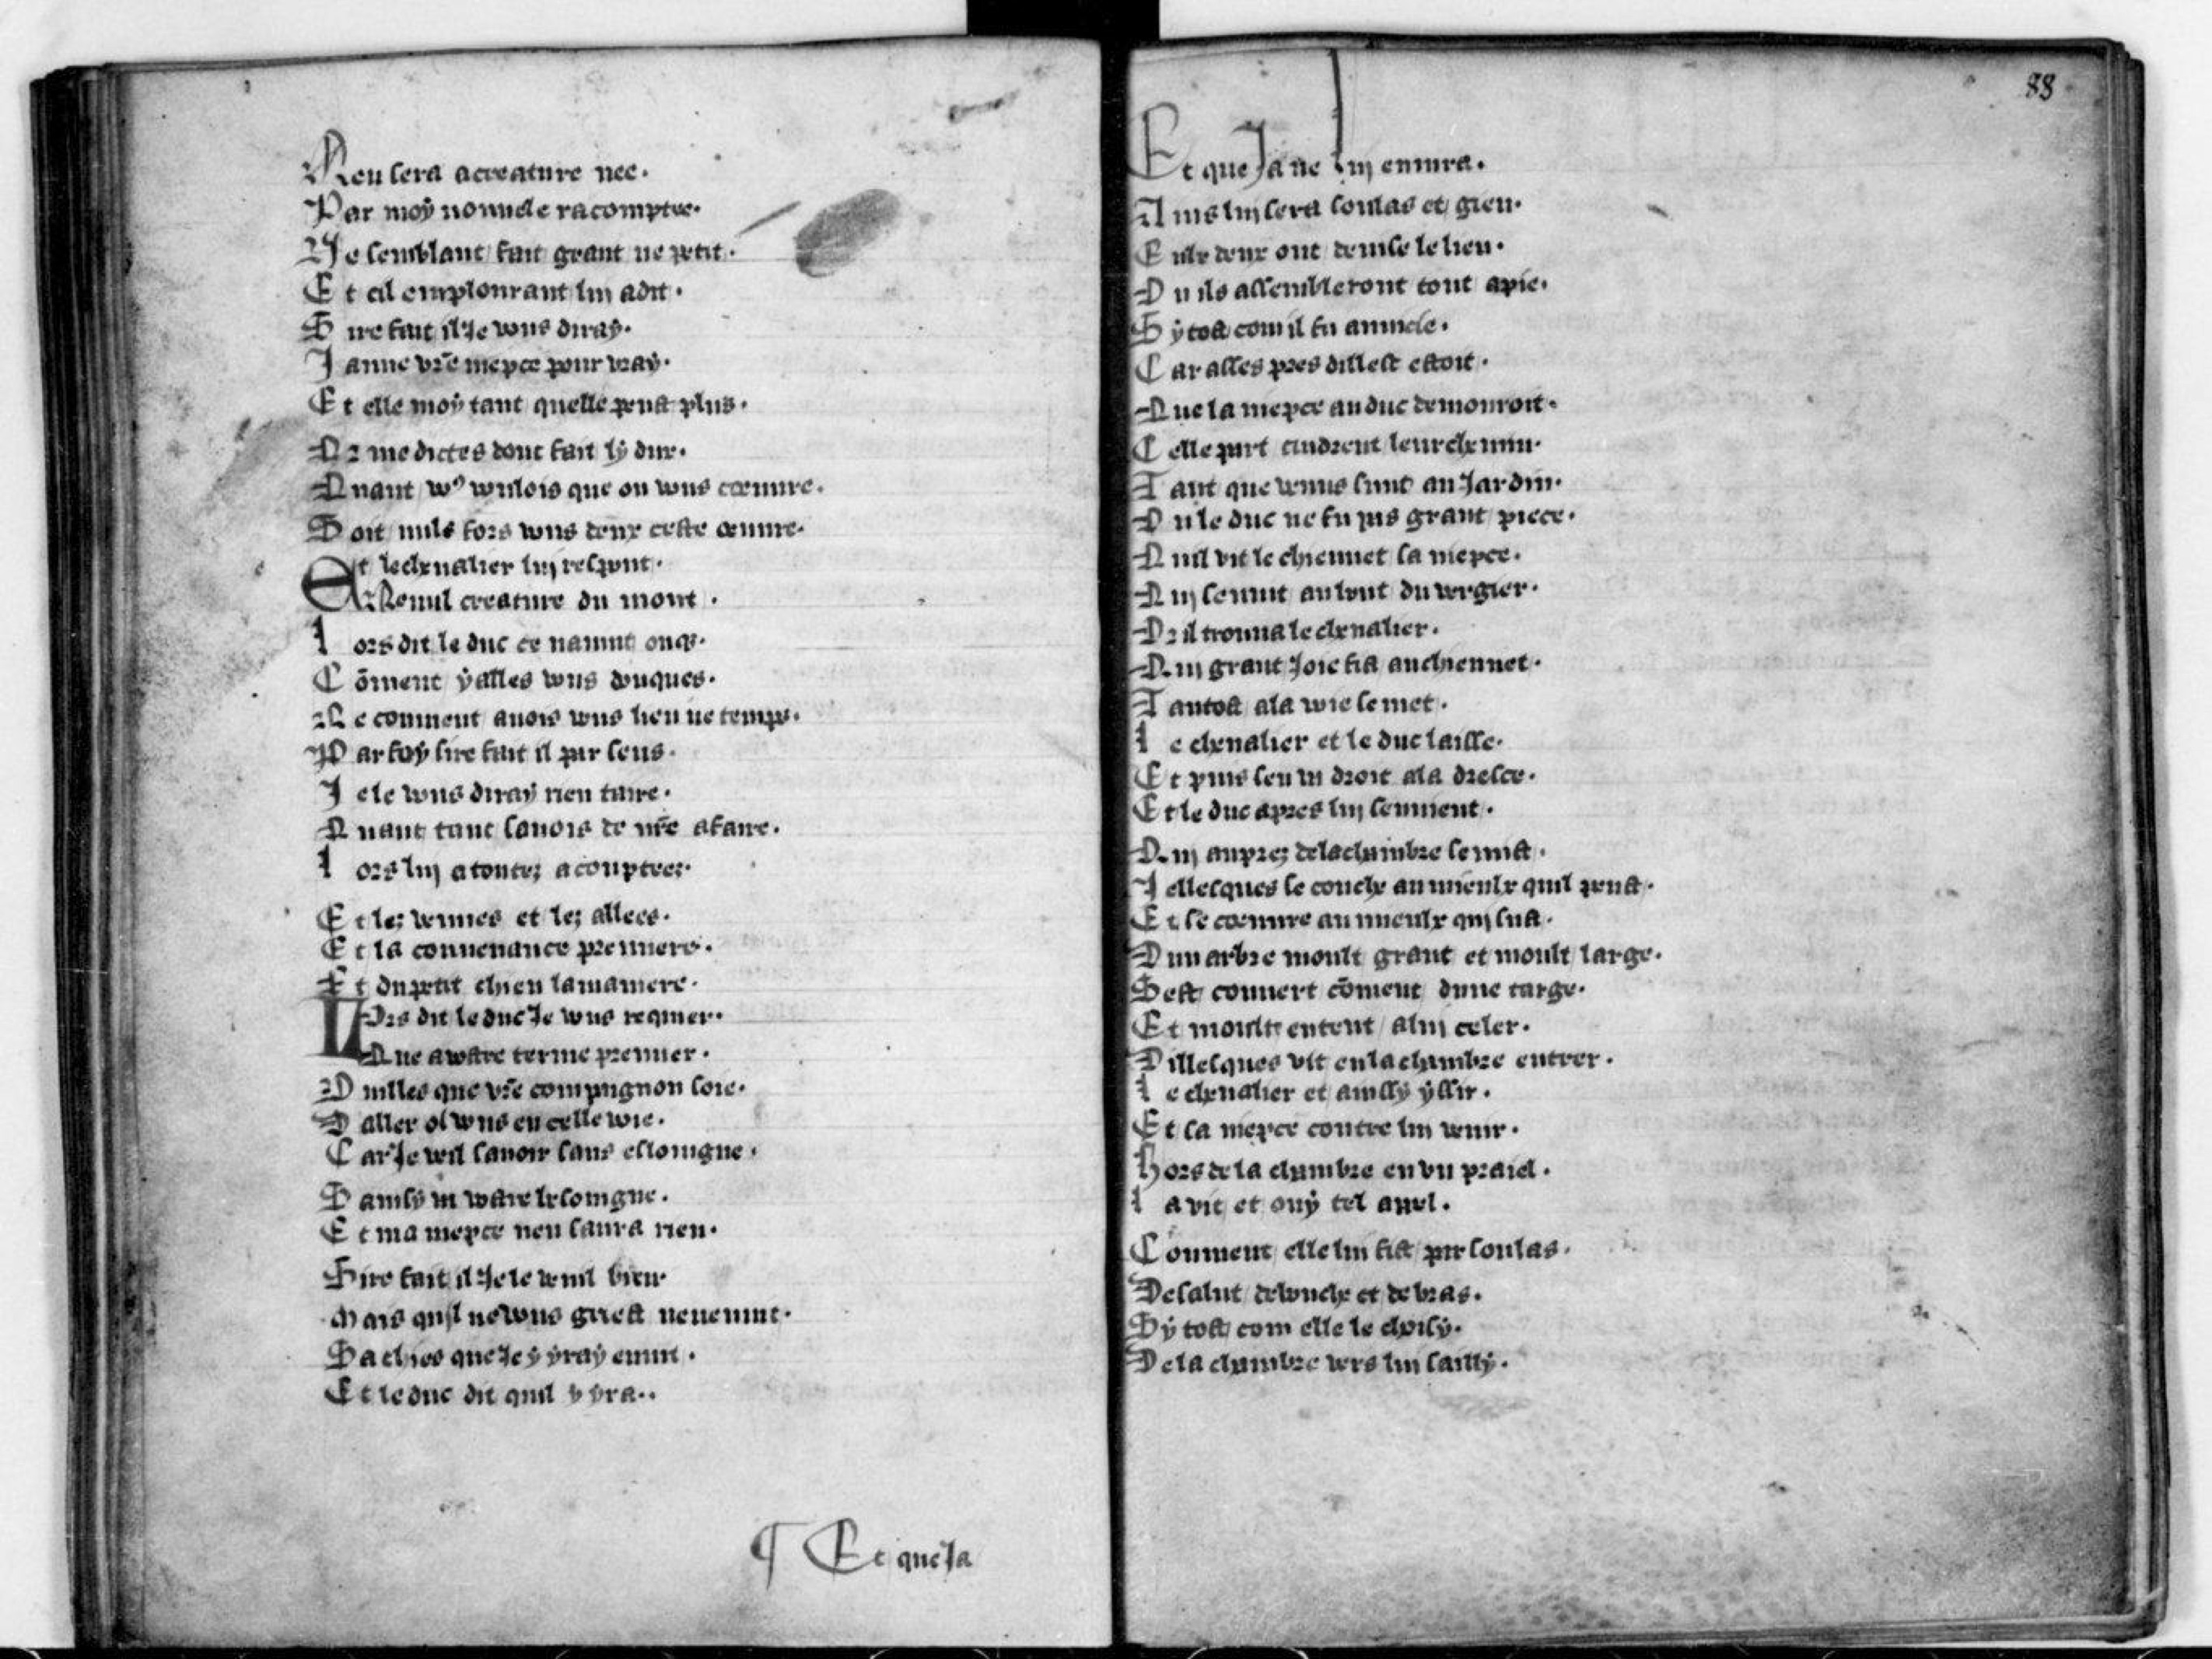 Nen sera a creature nee.
Par moy nouuele racomptee.
Ne semblant fait grant ne petit.
Et cil emplourant luy a dit.
Sire fait il Je vous diray.
Jaime vr̄e niepce pour vray.
Et elle moy tant quelle peust plus.
Or me dictes dont fait ly dux.
Quant vo⁹ voulois que on vous coeuure.
Soit nuls fors vous deux ceste oeuure.
Et le cheualier luy respont.
Nenul creature du mont.
Lors dit le duc ce nauint onq̄s.
Cōment y alles vous donques.
Ne comment auois vous lieu ne temps.
Par foy sire fait il par sens.
Je le vous diray rien taire.
Quant tant sauois de nr̄e afaire.
Lors luy a toutez acompteez.
Et lez venues et lez allees.
Et la conuenance premiere.
Et du petit chien la maniere.
Lors dit le duc Je vous requier.
Que a vostre terme premier.
Vuilles que vr̄e compaignon soie.
Daller o vous en celle voie.
Car Je veil sauoir sans essoingne.
Sainsy va vostre besoingne.
Et ma niepce nen saura rien.
Sire fait il Je le veuil bien
Mais quil ne vous griest ne enuint.
Sachies que Je y yray enuit.
Et le duc dit quil y yra..
¶ Et que Ja
88
Et que Ja ne luy enuira.
Ains luy sera soulas et gieu.
Eulx deux ont deuise le lieu.
Ou ils assembleront tout a pie.
Sy tost com il fu anuicie.
Car asses pres dillest estoit.
Que la niepce au duc demouroit.
Celle part tindrent leur chemin.
Tant que venus sunt au Jardin.
Ou le duc ne fu pas grant piece.
Quil vit le chiennet sa niepce.
Qui sen vint au bout du vergier.
Or il trouua le cheualier.
Qui grant Joie fist au chiennet.
Tantost a la voie se met.
Le cheualier et le duc laisse.
Et puis sen va droit a la dresce.
Et le duc apres luy sen vient.
Qui auprez de la chambre se mist.
Jllesques se couche au mieulx quil peust.
Et se coeuure au mieulx quy sust.
Dun arbre moult grant et moult large.
Sest couuert cōment dune targe.
Et moult entent a luy celer.
Dillesques vit en la chambre entrer.
Le cheualier et ainssy yssir.
Et sa niepce contre luy venir.
Hors de la chambre en vn praiel.
La vit et ouy tel auel.
Comment elle luy fist par soulas.
De salut de bouche et de bras.
Sy tost com elle le choisy.
De la chambre vers luy sailly.